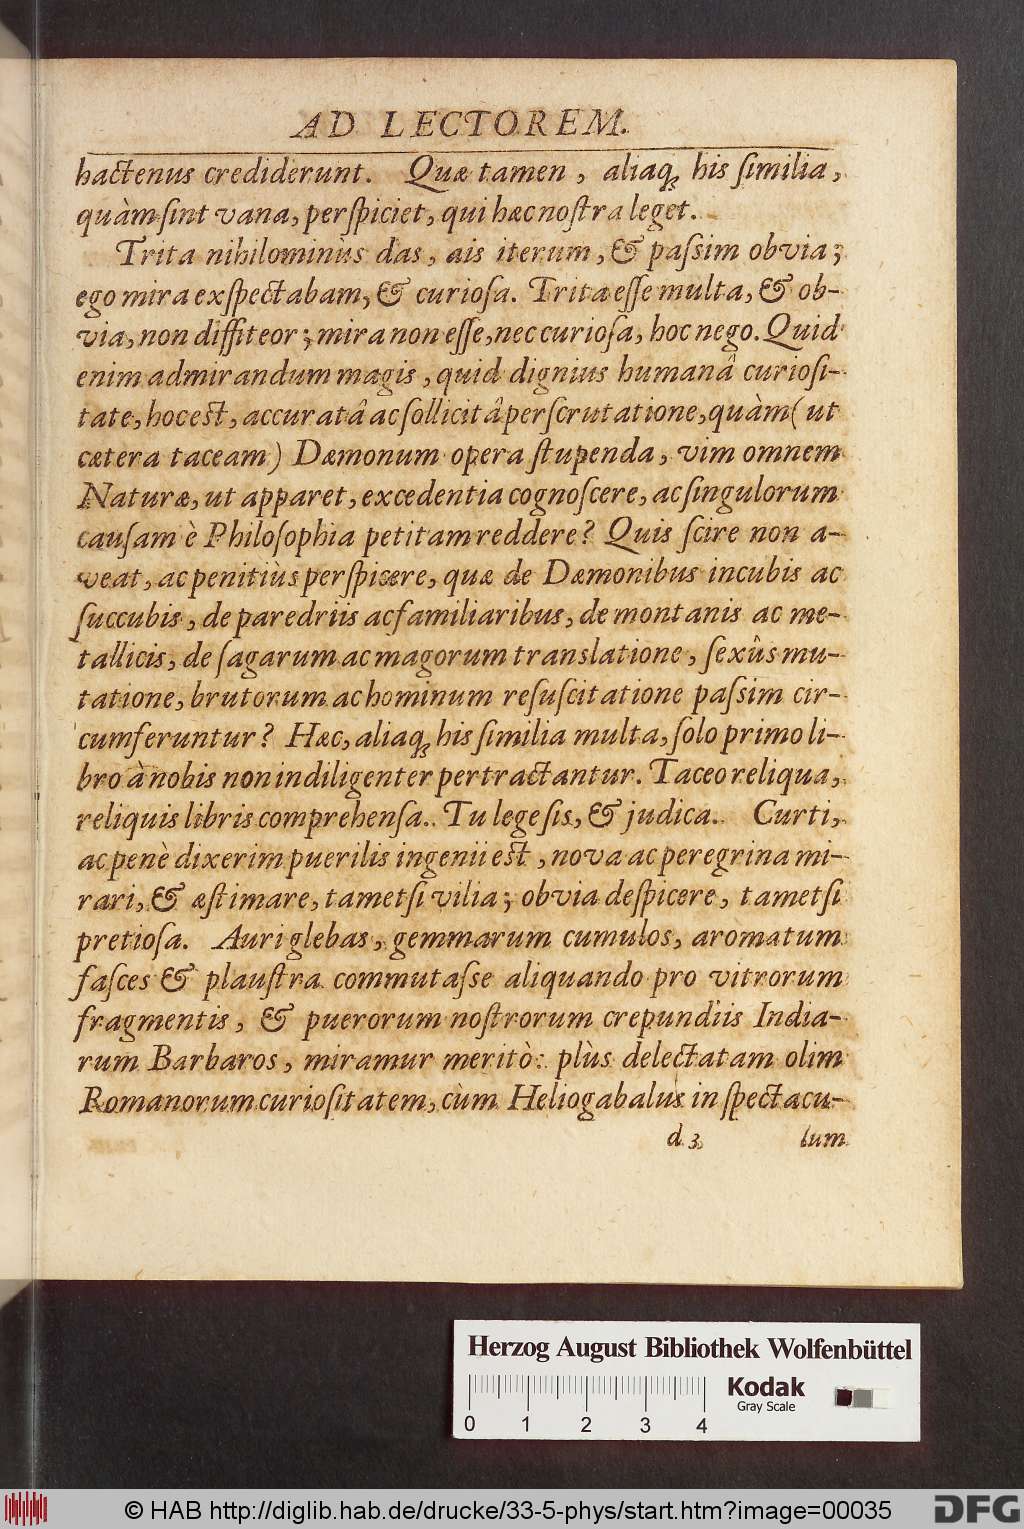 AD LECTOREM.
hactenus crediderunt. Quæ tamen, aliaq́ꝫ his ſimilia,
quàm ſint vana, perſpiciet, qui hæc noſtra leget.
Trita nihilominùs das, ais iterum, & paſsim obvia;
ego mira exſpectabam, & curioſa. Trita eſſe multa, & ob-
via, non diffiteor; mira non eſſe, nec curioſa, hoc nego. Quid
enim admirandum magis, quid dignius humanâ curioſi-
tate, hoc est, accuratâ ac ſollicitâ perſcrutatione, quàm (ut
cætera taceam) Dæmonum opera ſtupenda, vim omnem
Naturæ, ut apparet, excedentia cognoſcere, ac ſingulorum
cauſam è Philoſophia petitam reddere? Quis ſcire non a-
veat, ac penitiùs perſpicere, quæ de Dæmonibus incubis ac
ſuccubis, de paredriis ac familiaribus, de montanis ac me-
tallicis, de ſagarum ac magorum translatione, ſexûs mu-
tatione, brutorum ac hominum reſuſcitatione paſsim cir-
cumferuntur? Hæc, aliaq́ꝫ his ſimilia multa, ſolo primo li-
bro à nobis non indiligenter pertractantur. Taceo reliqua,
reliquis libris comprehenſa. Tu lege ſis, & judica. Curti,
ac penè dixerim puerilis ingenii est, nova ac peregrina mi-
rari, & æſtimare, tametſi vilia; obvia deſpicere, tametſi
pretioſa. Auri glebas, gemmarum cumulos, aromatum
faſces & plauſtra commutaſse aliquando pro vitrorum
fragmentis, & puerorum noſtrorum crepundiis India-
rum Barbaros, miramur meritò: plùs delectatam olim
Romanorum curioſitatem, cùm Heliogabalus in ſpectacu-
d 3 lum
Herzog August Bibliothek Wolfenbüttel
0 1 2 3 4
Kodak
Gray Scale
© HAB http://diglib.hab.de/drucke/33-5-phys/start.htm?image=00035
DFG